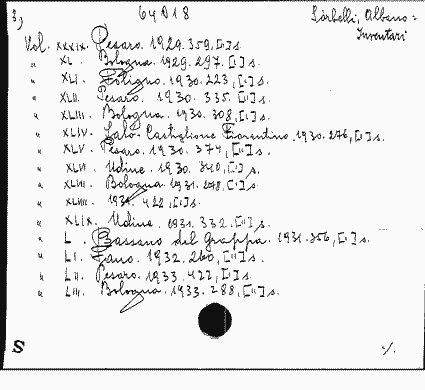 3, 64018 Sorbelli, Albano =
Inventari
Vol. XXXIX. Pesaro. 1929. 359, [1] s.
" XL. Bologna. 1929. 297. [1] s.
" XLI. Foligno. 1930. 223, [1] s.
" XLII. Pesaro. 1930. 335. [1] s.
" XLIII. Bologna. 1930. 308, [1] s.
" XLIV. Castiglione Fiorentino. 1930. 276, [1] s.
" XLV. Pesaro. 1930. 374, [11] s.
" XLVI. Udine. 1930. 340, [1] s.
" XLVII. Bologna. 1931. 278, [1] s.
" XLVIII. 1931. 422, [1] s.
" XLIX. Udine. 1931. 332. [11] s.
" L. Bassano del Grappa. 1931. 356, [1] s.
" LI. Fano. 1932. 260, [11] s.
" LII. Pesaro. 1933. 422, [1] s.
" LIII. Bologna. 1933. 288, [11] s.
S ./.